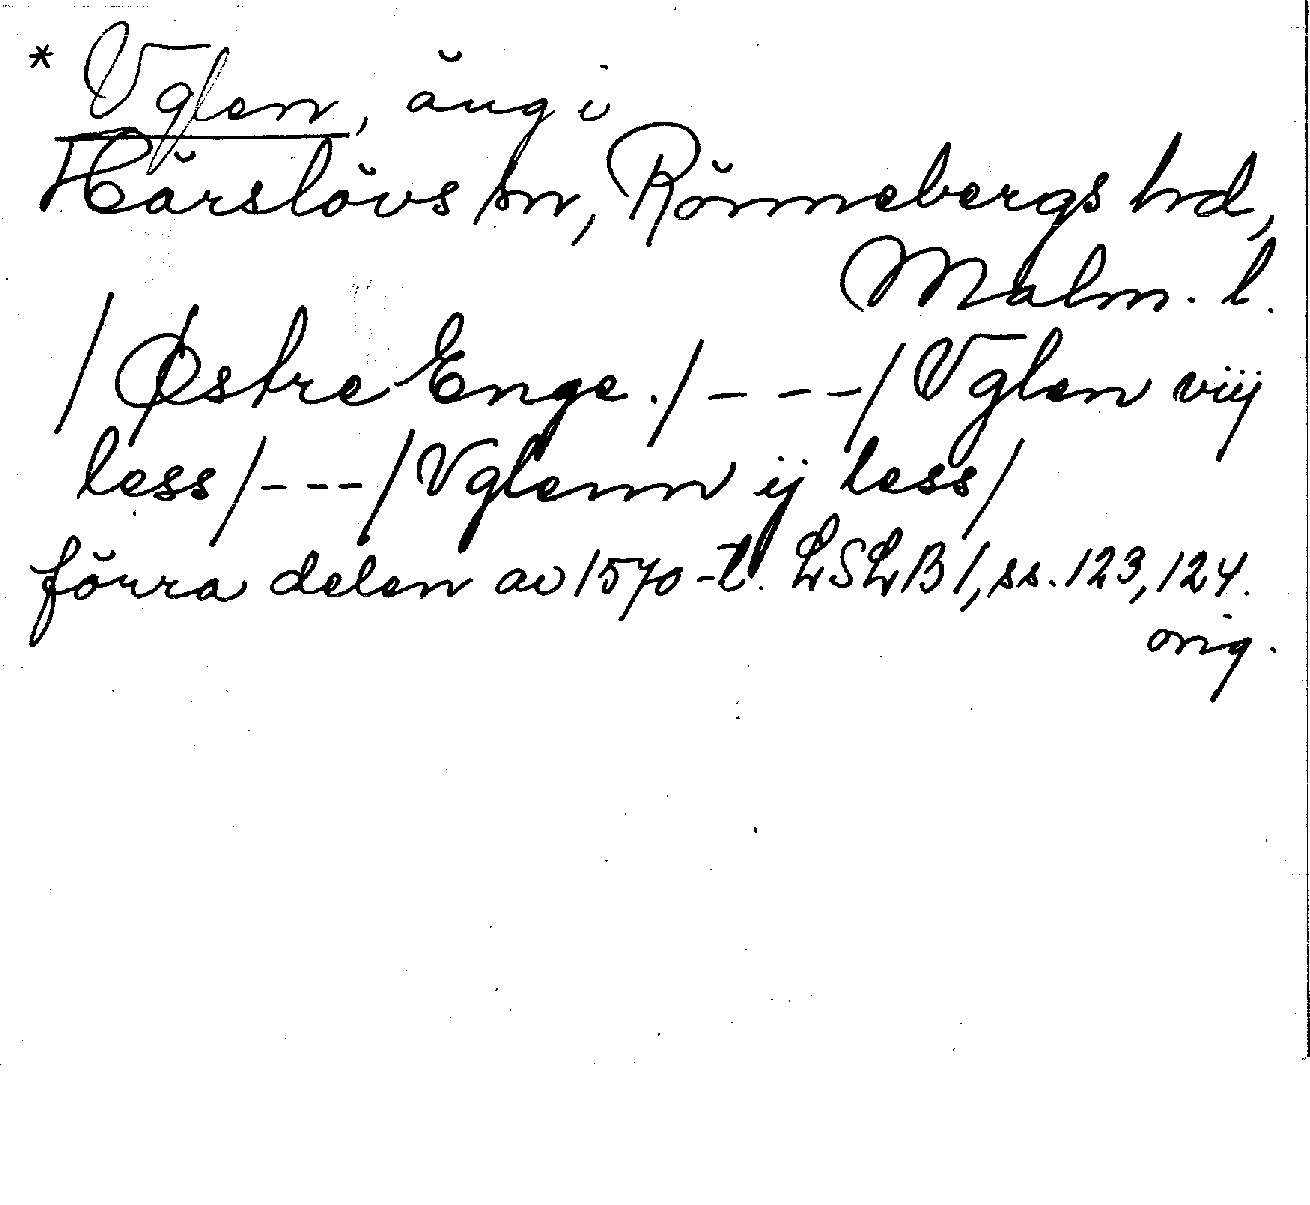 * Vglen, äng i
Härslövs sn, Rönnebergs hd,
Malm. l.
/Østre Enge./ - - - / Vglen viij
less / - - - / Vglenn ij less /
förra delen av 1570-t. LSLB 1, ss. 123, 124.
orig.